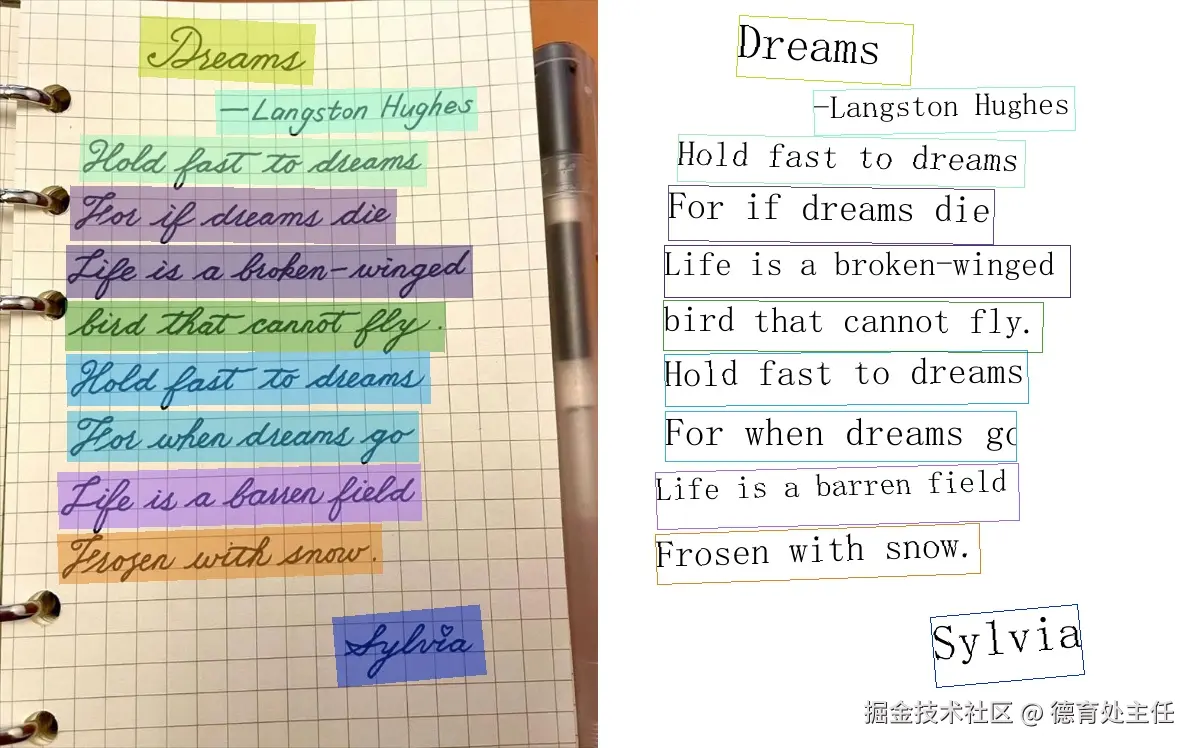 Dreams
—Langston Hughes
Hold fast to dreams
For if dreams die
Life is a broken-winged
bird that cannot fly.
Hold fast to dreams
For when dreams go
Life is a barren field
Frozen with snow.
Sylvia
Dreams
—Langston Hughes
Hold fast to dreams
For if dreams die
Life is a broken-winged
bird that cannot fly.
Hold fast to dreams
For when dreams go
Life is a barren field
Frosen with snow.
Sylvia
掘金技术社区 @ 德育处主任